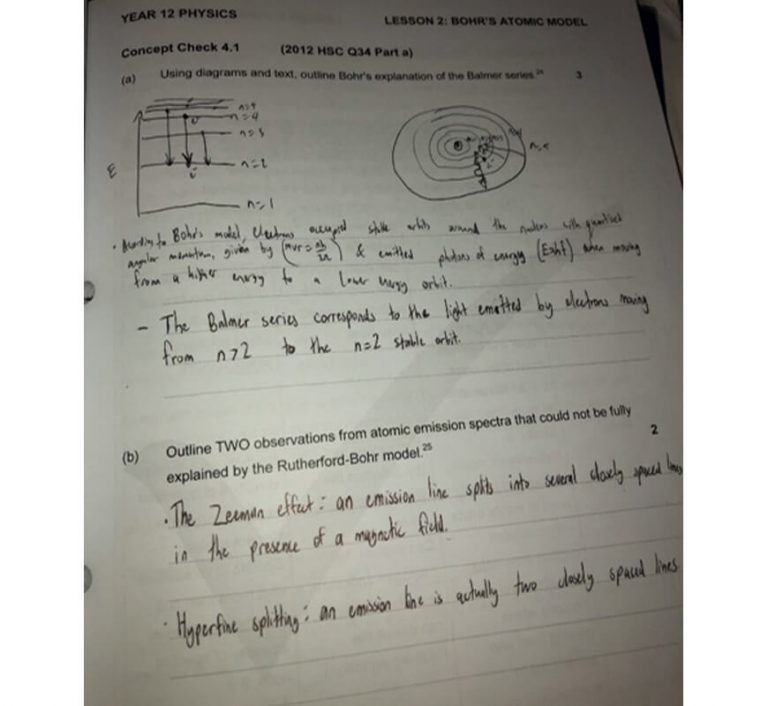 YEAR 12 PHYSICS
LESSON 2: BOHR'S ATOMIC MODEL
Concept Check 4.1 (2012 HSC Q34 Part a)
(a) Using diagrams and text, outline Bohr's explanation of the Balmer series.24 3
n=5
n=4
n=3
n=2
n=1
E
According to Bohr's model, electrons occupied stable orbits around the nucleus with quantised
angular momentum, given by (mvr = nh/2π) & emitted photons of energy (E=hf) when moving
from a higher energy to a lower energy orbit.
- The Balmer series corresponds to the light emitted by electrons moving
from n>2 to the n=2 stable orbit.
(b) Outline TWO observations from atomic emission spectra that could not be fully
explained by the Rutherford-Bohr model.25 2
· The Zeeman effect: an emission line splits into several closely spaced lines
in the presence of a magnetic field.
· Hyperfine splitting: an emission line is actually two closely spaced lines